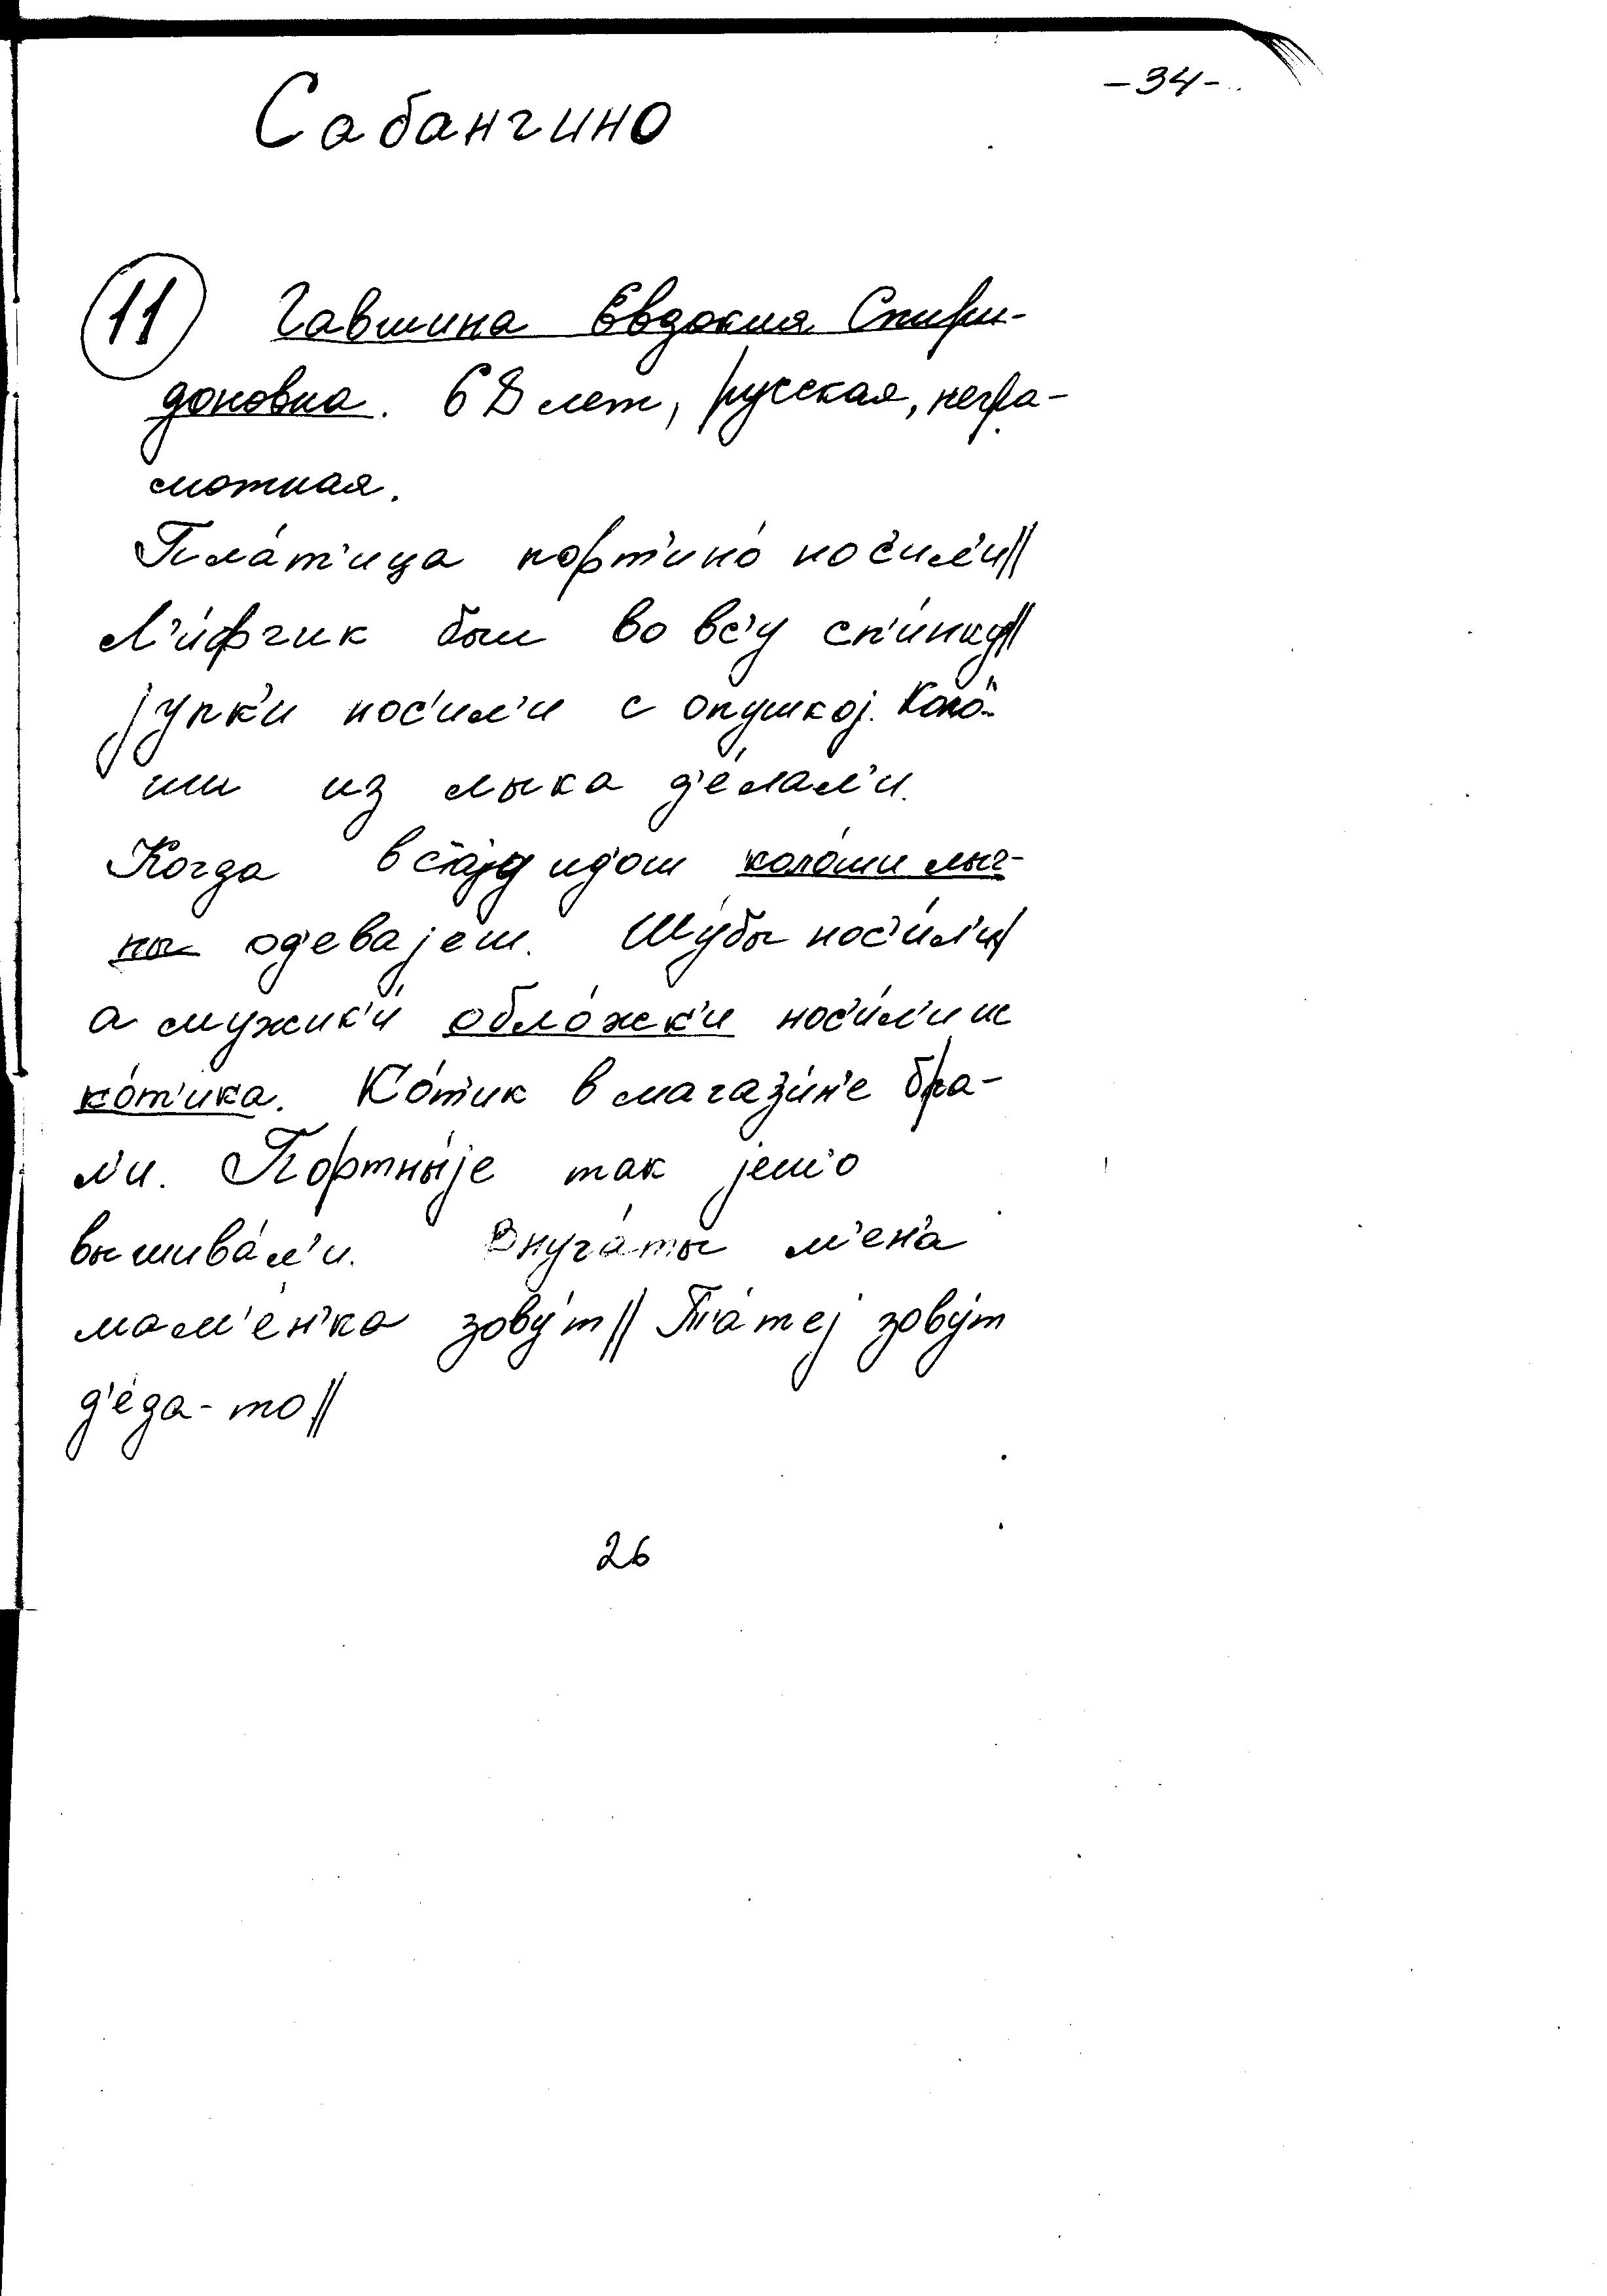 -34-
Сабанчино
11 Чавшина Евдокия Спири-
доновна. 68 лет, русская, негра-
мотная.
Пла́т'ица порт'ино́ нос'ил'и||
Л'и́фчик был во вс'у сп'и́нку||
јупк'и нос'ил'и с опушкој. Коло́-
ши из лыка д'е́лал'и.
Когда идош коло́ши лыч-
ны од'евајеш. Шу́бы нос'и́л'и/
а мужик'и́ обло́жк'и нос'и́л'и ис
ко́т'ика. Ко́т'ик в магаз'и́н'е бра-
л'и. Портны́је так јеш'о
вышива́л'и. Внуча́ты м'ен'а
мам'е́н'ка зову́т|| Т'а́теј зову́т
д'е́да-то||
26